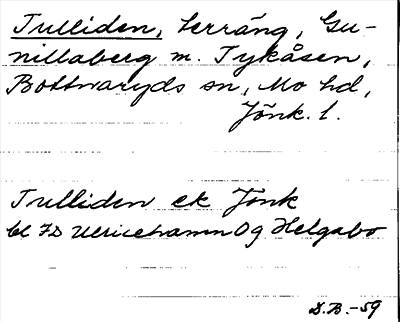 Tulliden, terräng, Gu-
nillaberg m. Tykåsen,
Bottnaryds sn, Mo hd,
Jönk. l.
Tulliden ek Jönk
bl 7D Ulricehamn Og Helgabo
D.B.-59